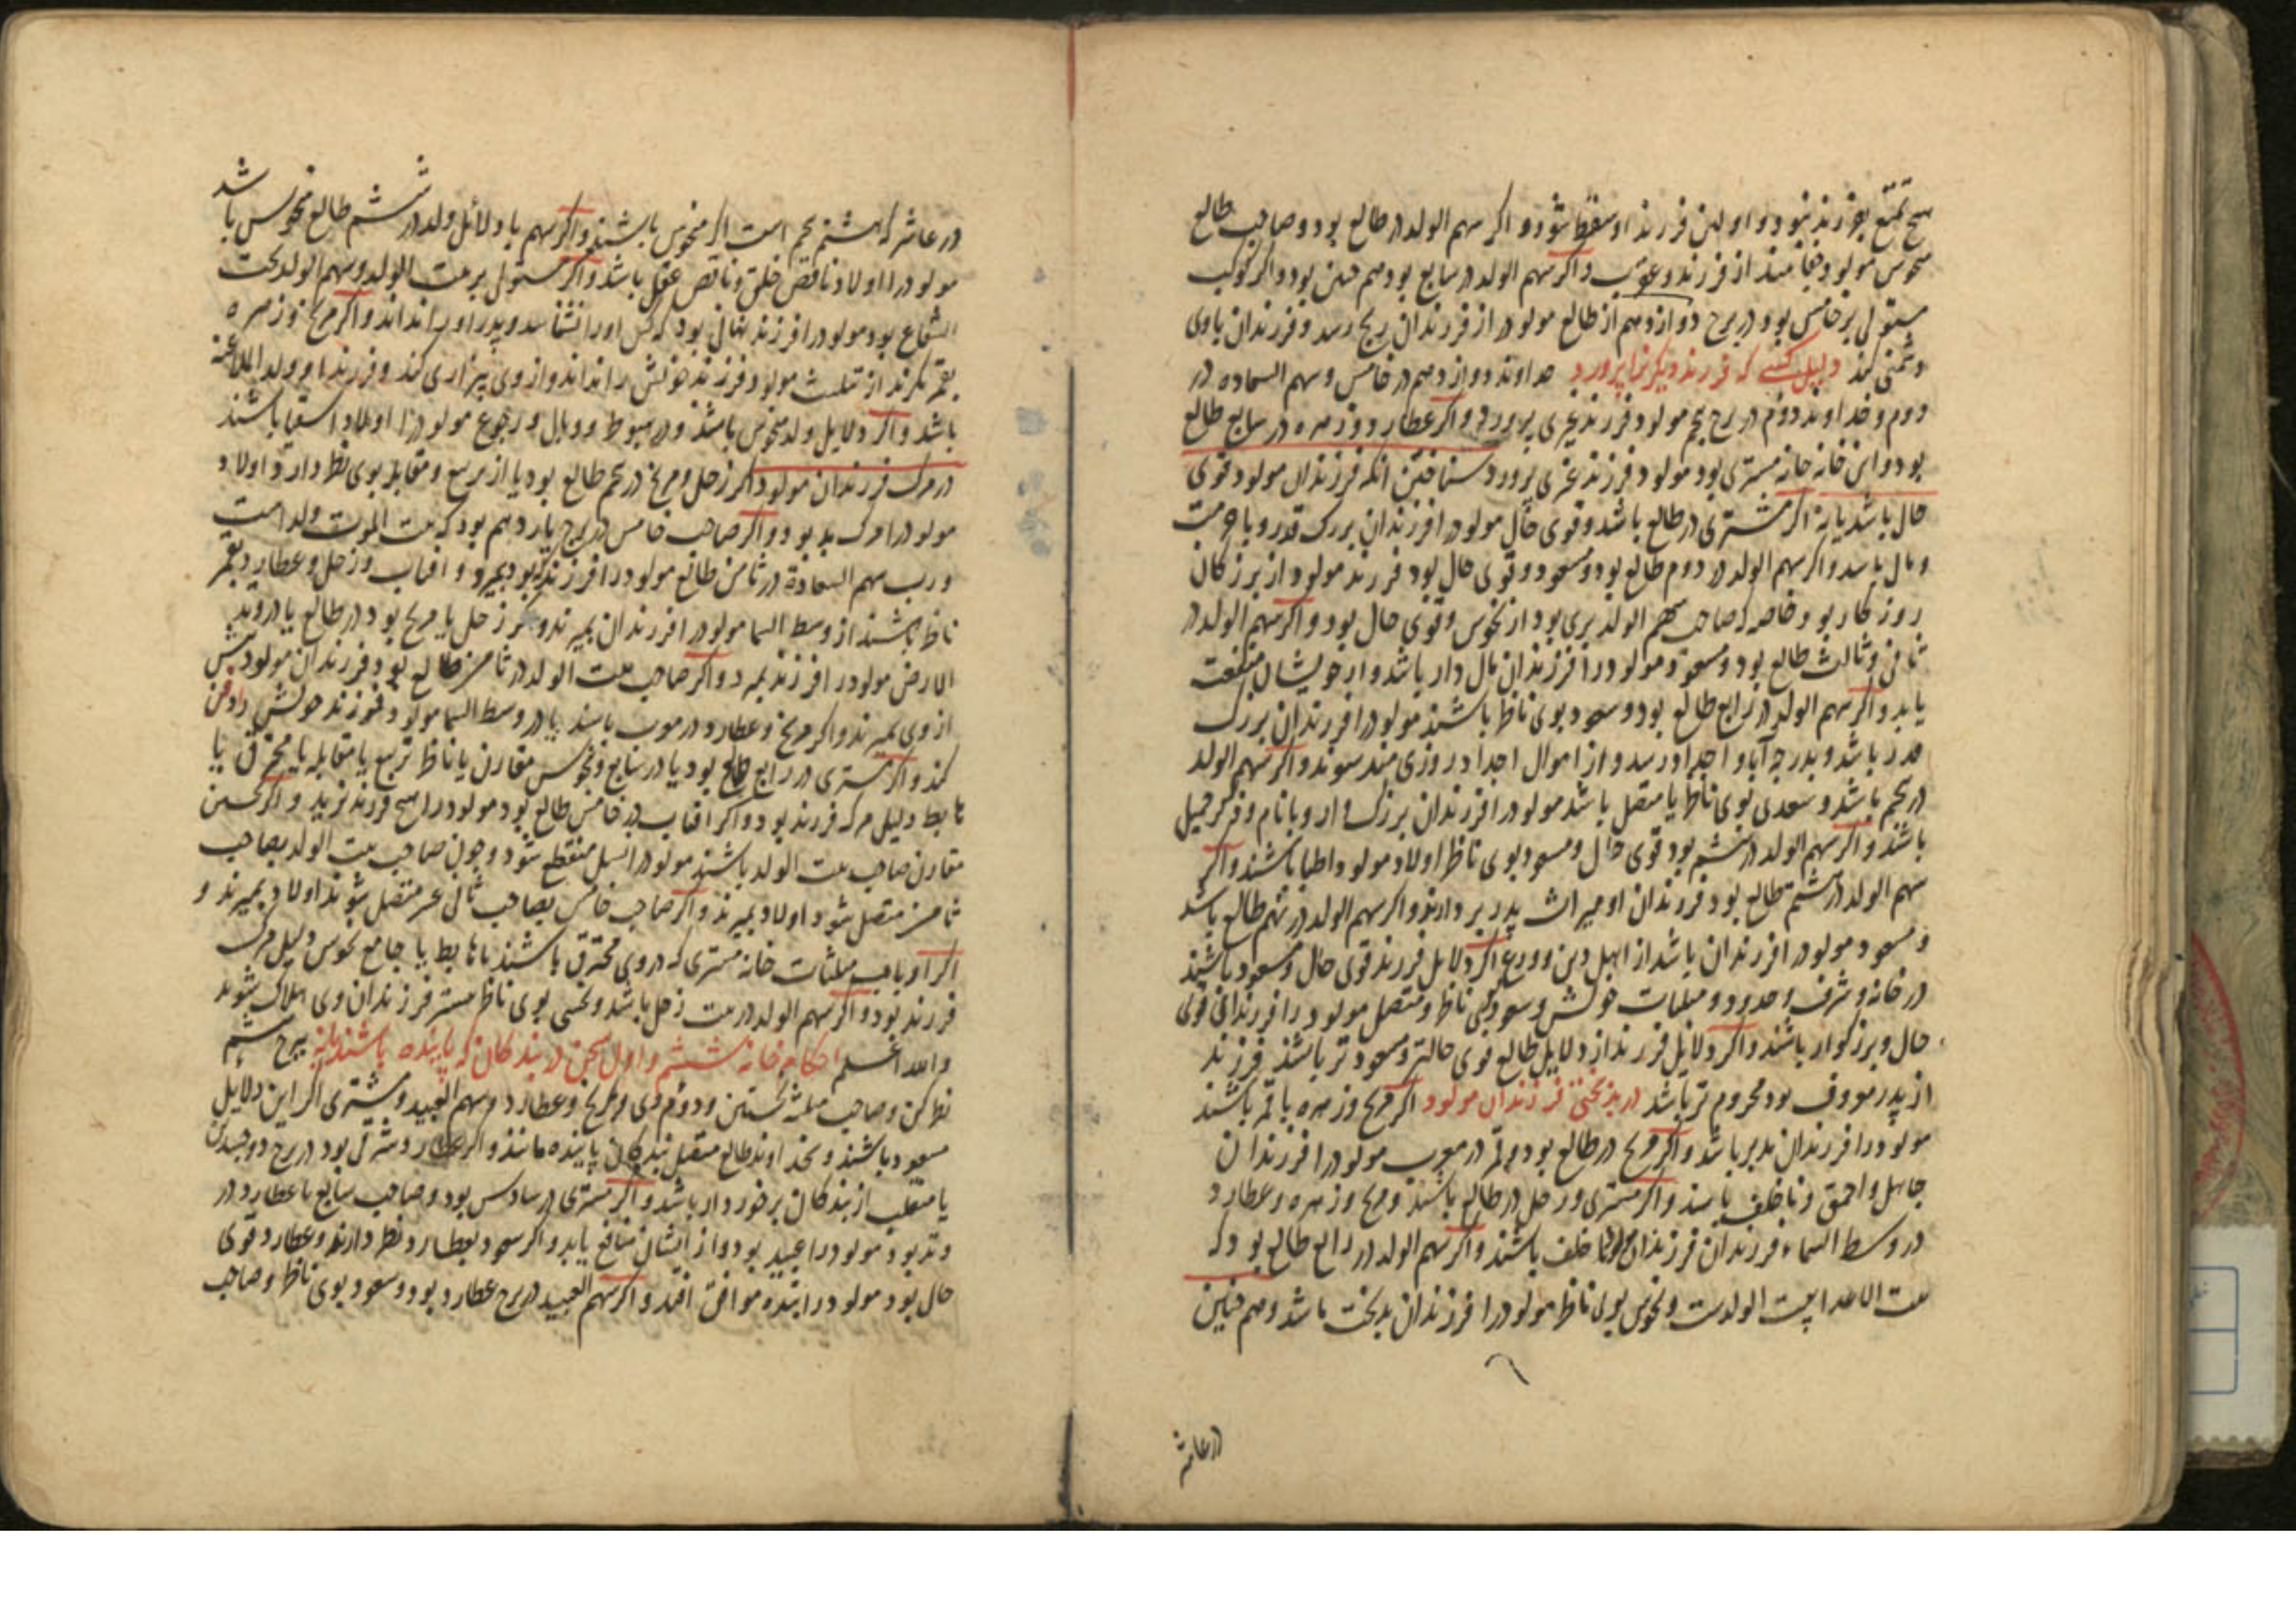 هیچ تمتع بفرزند نبود و اولین فرزند او سقط شود و اگر سهم الولد در طالع بود و صاحب طالع
منحوس مولود از فرزند و اگر سهم الولد در سابع بود هم چنین بود و اگر کوکب
مستولی بر خامس بود در برج دوازدهم از طالع مولود را از فرزندان رنج رسد و فرزندان با وی
دشمنی کند دلیل کسی که فرزند دیگر نرا پرورد خداوند دوازدهم در خامس و سهم السعاده در
دوم و خداوند دوم در برج پنجم مولود فرزند غیری پرورد و اگر عطارد و زهره در سابع طالع
بود و این خانه خانه مشتری بود مولود فرزند غیری پرورد شناختن انکه فرزندان مولود قوی
حال باشد یا نه اگر مشتری در طالع باشد و قوی حال مولود را فرزندان بزرک قدر و با حرمت
و مال باشد و اگر سهم الولد در دوم طالع بود و مسعود و قوی حال بود فرزند مولود از بزرکان
روزکار بود خاصه که صاحب سهم الولد بری بود از نحوس و قوی حال بود و اگر سهم الولد در
ثانی و ثالث طالع بود و مسعود مولود را فرزندان مال دار باشد و از خویشان منفعت
یابد و اگر سهم الولد در رابع طالع بود و سعود بوی ناظر باشند مولود را فرزندان بزرک
قدر باشد و بدرجه آبا و اجداد رسد و از اموال اجداد روزی مند شوند و اگر سهم الولد
در پنجم باشد و سعدی بوی ناظر یا متصل باشد مولود را فرزندان بزرکوار و با نام و ذکر جمیل
باشند و اگر سهم الولد در ششم بود قوی حال و مسعود بوی ناظر اولاد مولود اطبا باشند و اگر
سهم الولد در هشتم طالع بود فرزندان او میراث پدر بردارند و اگر سهم الولد در نهم طالع باشد
و مسعود مولود را فرزندان باشد از اهل دین و ورع اگر دلایل فرزند قوی حال و مسعود باشند
در خانه و شرف و حدود و مثلثات خویش و سعود بوی ناظر و متصل مولود را فرزندان قوی
حال و بزرکوار باشند و اگر دلایل فرزند از دلایل طالع قوی حالتر و مسعود تر باشند فرزند
از پدر معروف بود محروم تر باشد در بدبختی فرزندان مولود اگر مریخ و زهره با قمر باشند
مولود را فرزندان مدبر باشد و اگر مریخ در طالع بود و قمر در مغرب مولود را فرزندان
جاهل و احمق و ناخلف باشند و اگر مشتری و زحل در طالع باشند و مریخ و زهره و عطارد
در وسط السماء فرزندان فرزندان مولود ناخلف باشند و اگر سهم الولد در رابع طالع بود که
بیت الاعدا بیت الولدست و نحوس بوی ناظر مولود را فرزندان بدبخت باشد و هم چنین
در عاشر
در عاشر که هشتم پنجم است اگر منحوس باشند و اگر سهم یا دلائل ولد در ششم طالع منحوس باشد
مولود را اولاد ناقص خلق و ناقص عقل باشد و اگر مستولی بر بیت الولد و سهم الولد تحت
الشعاع بود مولود را فرزند نهانی بود که کس او را نشناسد و پدر او را نداند و اگر مریخ و زهره
بقمر نکرند از تثلیث مولود فرزند خویش را نداند و از وی بیزاری کند و فرزند او ولد الملاعنه
باشد و اگر دلایل ولد منحوس باشند و در هبوط و وبال و رجوع مولود را اولاد اسقط باشند
در مرک فرزندان مولود اگر زحل و مریخ در پنجم طالع بود یا از تربیع و مقابله بوی نظر دارد اولاد
مولود را مرک بد بود و اگر صاحب خامس در برج یازدهم بود که بیت الموت ولد است
و رب سهم السعادة در ثامن طالع مولود را فرزند که بود بمیرد و افتاب و زحل و عطارد بقمر
ناظر باشند از وسط السما مولود را فرزندان بمیرند و اگر زحل یا مریخ بود در طالع یا در وتد
الارض مولود را فرزند بمیرد و اگر صاحب بیت الولد در ثامن طالع بود فرزندان مولود پیش
از وی بمیرند و اگر مریخ و عطارد در موت باشند یا در وسط السما مولود فرزند خویش را دفن
کند و اگر مشتری در رابع طالع بود یا در سابع و نحوس مقارن یا ناظر تربیع یا مقابله یا محترق یا
هابط دلیل مرک فرزند بود و اگر افتاب در خامس طالع بود مولود را هیچ فرزند نزید و اگر نحسین
مقارن صاحب بیت الولد باشند مولود را نسل منقطع شود و چون صاحب بیت الولد بصاحب
ثامن متصل شود اولاد بمیرند و اگر صاحب خامس بصاحب ثانی عشر متصل شوند اولاد بمیرند و
اگر ارباب مثلثات خانه مشتری که در وی محترق باشند یا هابط یا جامع نحوس دلیل مرک
فرزند بود و اگر سهم الولد در بیت زحل باشد و نحسی بوی ناظر فرزندان وی هلاک شوند
والله اعلم احکام خانه ششم و اول سخن در بندکان که پاینده باشند یا نه ببرج ششم
نظر کن و صاحب مثلثه نخستین و دوم وی و مریخ و عطارد و سهم العبید و مشتری اگر این دلایل
مسعود باشند و بخداوند طالع متصل بندکان پاینده مانند و اگر عطارد مشرقی بود در برج ذو جسدین
یا منقلب از بندکان برخوردار باشد و اگر مشتری در سادس بود و صاحب سابع با عطارد در
وتد بود مولود را عبید بود و از ایشان منافع یابد و اگر سعود بعطارد نظر دارند و عطارد قوی
حال بود مولود را بنده موافق افتد و اگر سهم العبید در برج عطارد بود و سعود بوی ناظر و صاحب